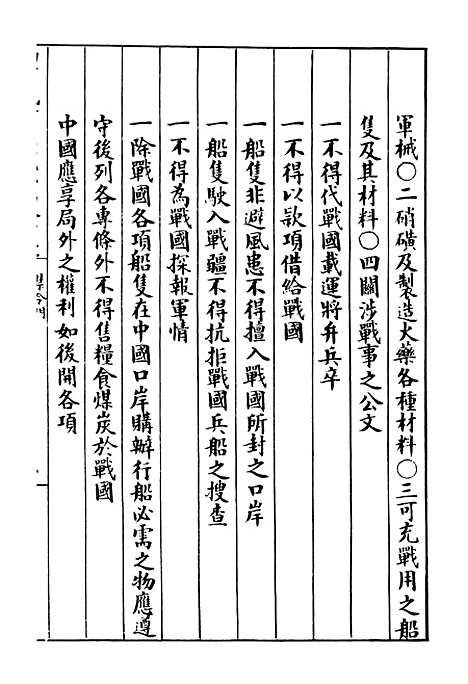 軍械〇二硝磺及製造火藥各種材料〇三可充戰用之船
隻及其材料〇四關涉戰事之公文
一不得代戰國載運將弁兵卒
一不得以款項借給戰國
一船隻非避風患不得擅入戰國所封之口岸
一船隻駛入戰疆不得抗拒戰國兵船之搜查
一不得為戰國探報軍情
一除戰國各項船隻在中國口岸購辦行船必需之物應遵
守後列各專條外不得售糧食煤炭於戰國
中國應享局外之權利如後開各項